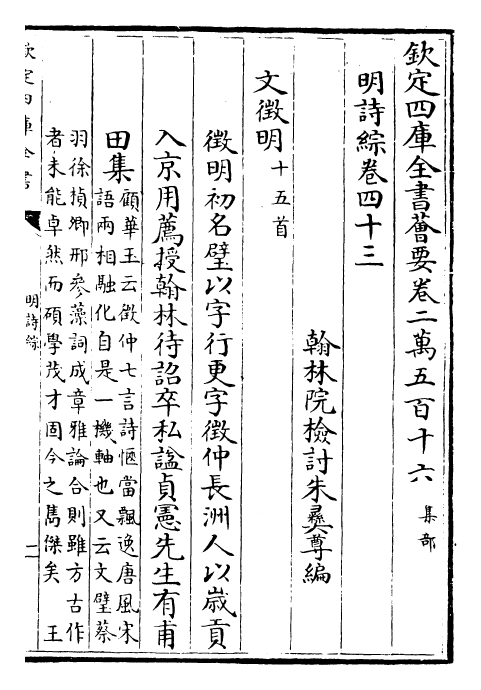 欽定四庫全書薈要卷二萬五百十六 集部
明詩綜卷四十三
翰林院檢討朱彝尊編
文徵明 十五首
徵明初名璧以字行更字徵仲長洲人以歲貢
入京用薦授翰林待詔卒私諡貞憲先生有甫
田集 顧華玉云徵仲七言詩愜當飄逸唐風宋
語兩相融化自是一機軸也又云文璧蔡
羽徐禎卿邢參藻詞成章雅論合則雖方古作
者未能卓然而碩學茂才固今之雋傑矣 王
欽定四庫全書
明詩綜
一